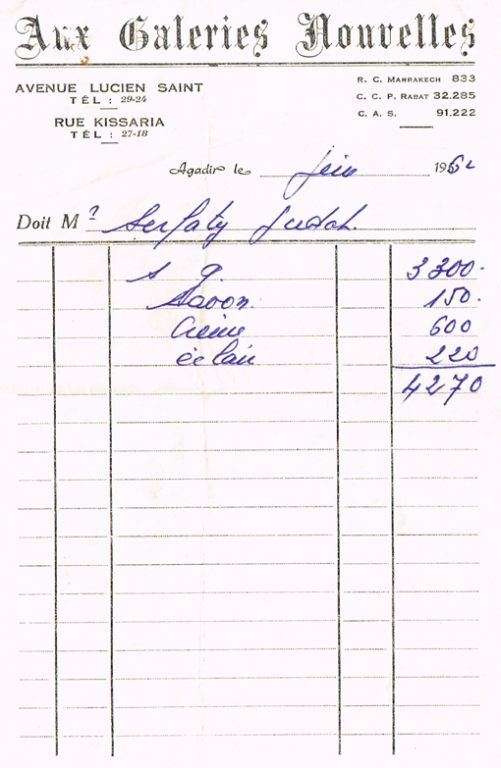 Aux Galeries Nouvelles
AVENUE LUCIEN SAINT
TÉL : 29-24
RUE KISSARIA
TÉL : 27-18
R. C. MARRAKECH 833
C. C. P. RABAT 32.285
C. A. S. 91.222
Agadir le juin 196
Doit M Serfaty Judah.
3300.
Savon. 150.
Creme 600
éclair 220
4270